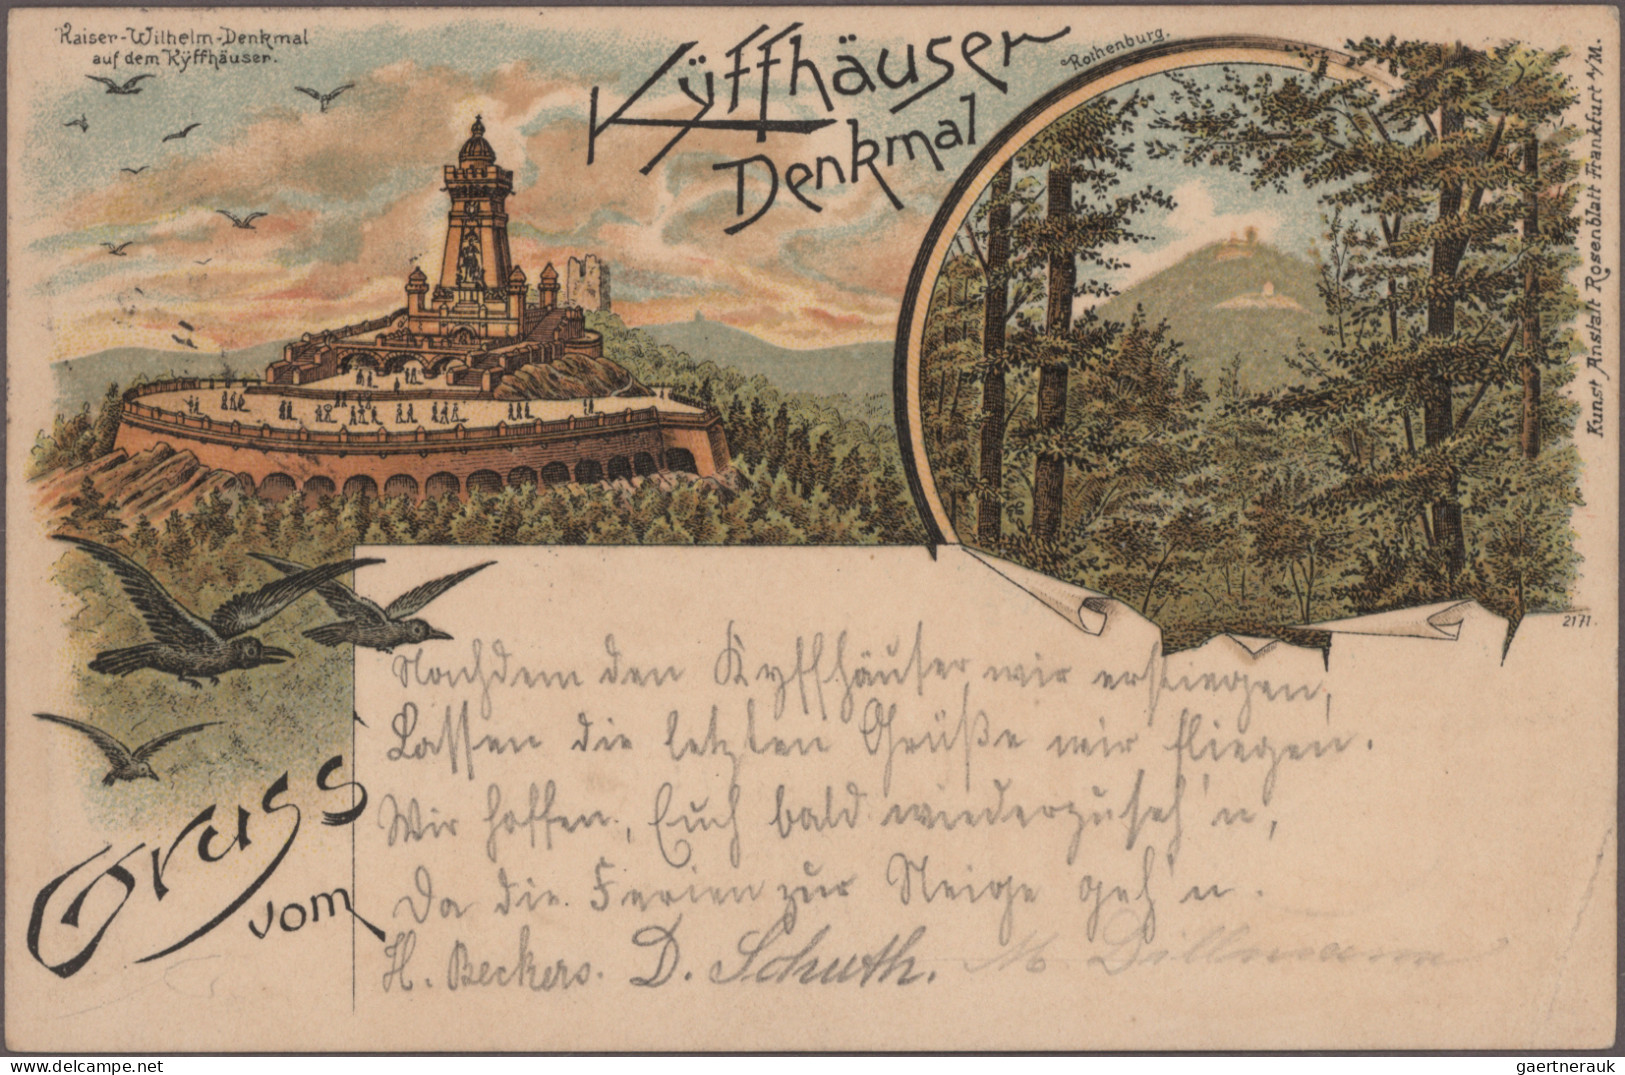 Kaiser-Wilhelm-Denkmal
auf dem Kÿffhäuser.
Kÿffhäuser
Denkmal
Rothenburg.
Kunst Anstalt Rosenblatt Frankfurt a/M.
2171.
Gruss
vom
Nachdem den Kyffhäuser wir erstiegen,
Lassen die letzten Grüße wir fliegen.
Wir hoffen, Euch bald wiederzuseh'n,
Da die Ferien zur Neige geh'n.
H. Beckers. D. Schuth. M. Dillmann
gaertnerauk